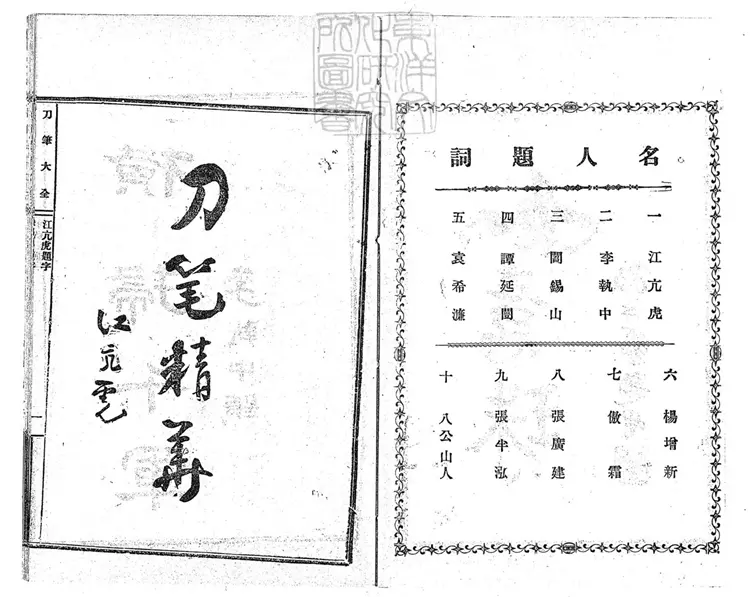 東洋文
化研究
所圖書
名人題詞
一 江亢虎
二 李執中
三 閻錫山
四 譚延闓
五 袁希濂
六 楊增新
七 傲霜
八 張廣建
九 張半泓
十 八公山人
刀笔精華
江亢虎
刀筆大全
江亢虎題字
一